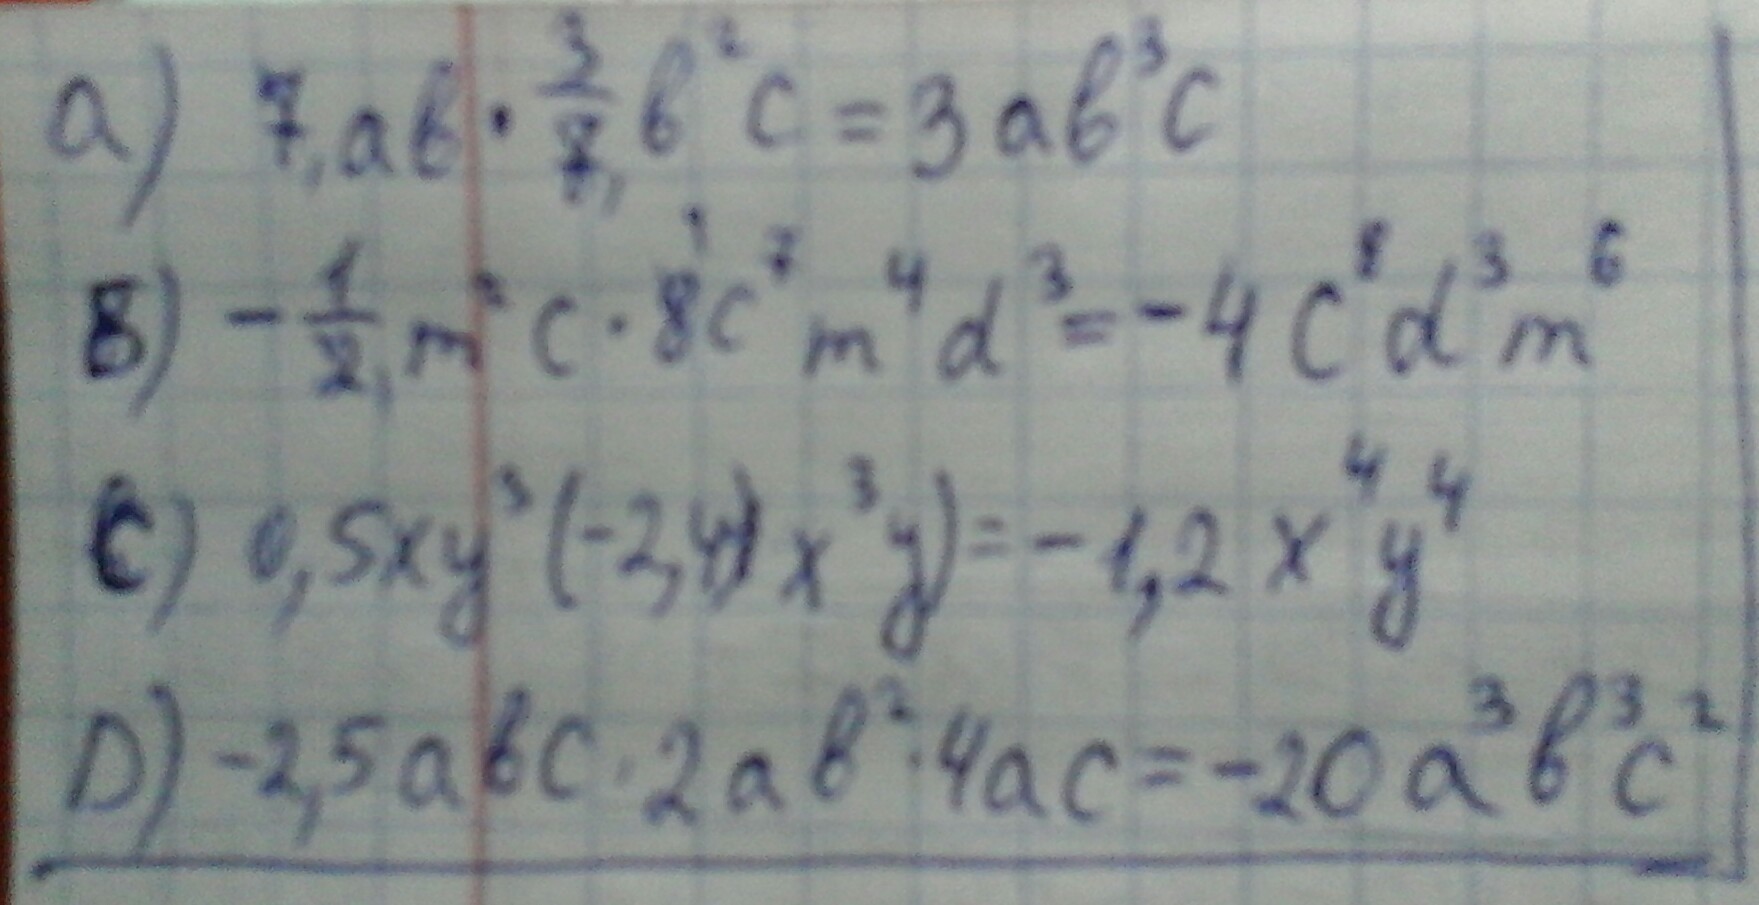 a) 7ab · 3/7 b²c = 3ab³c
B) -1/2 m²c · 8c⁷m⁴d³ = -4c⁸d³m⁶
C) 0,5xy³(-2,4x³y) = -1,2x⁴y⁴
D) -2,5abc · 2ab² · 4ac = -20a³b³c²